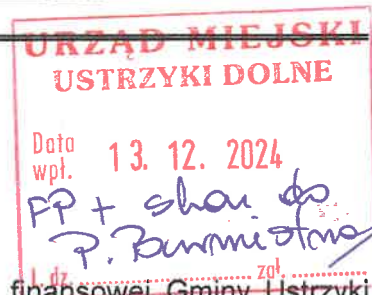 URZĄD MIEJSKI
USTRZYKI DOLNE
Data
wpł. 13. 12. 2024
FP + skan do
P. Burmistrza
L.dz. .................... zał. ....................
finansowej Gminy Ustrzyki